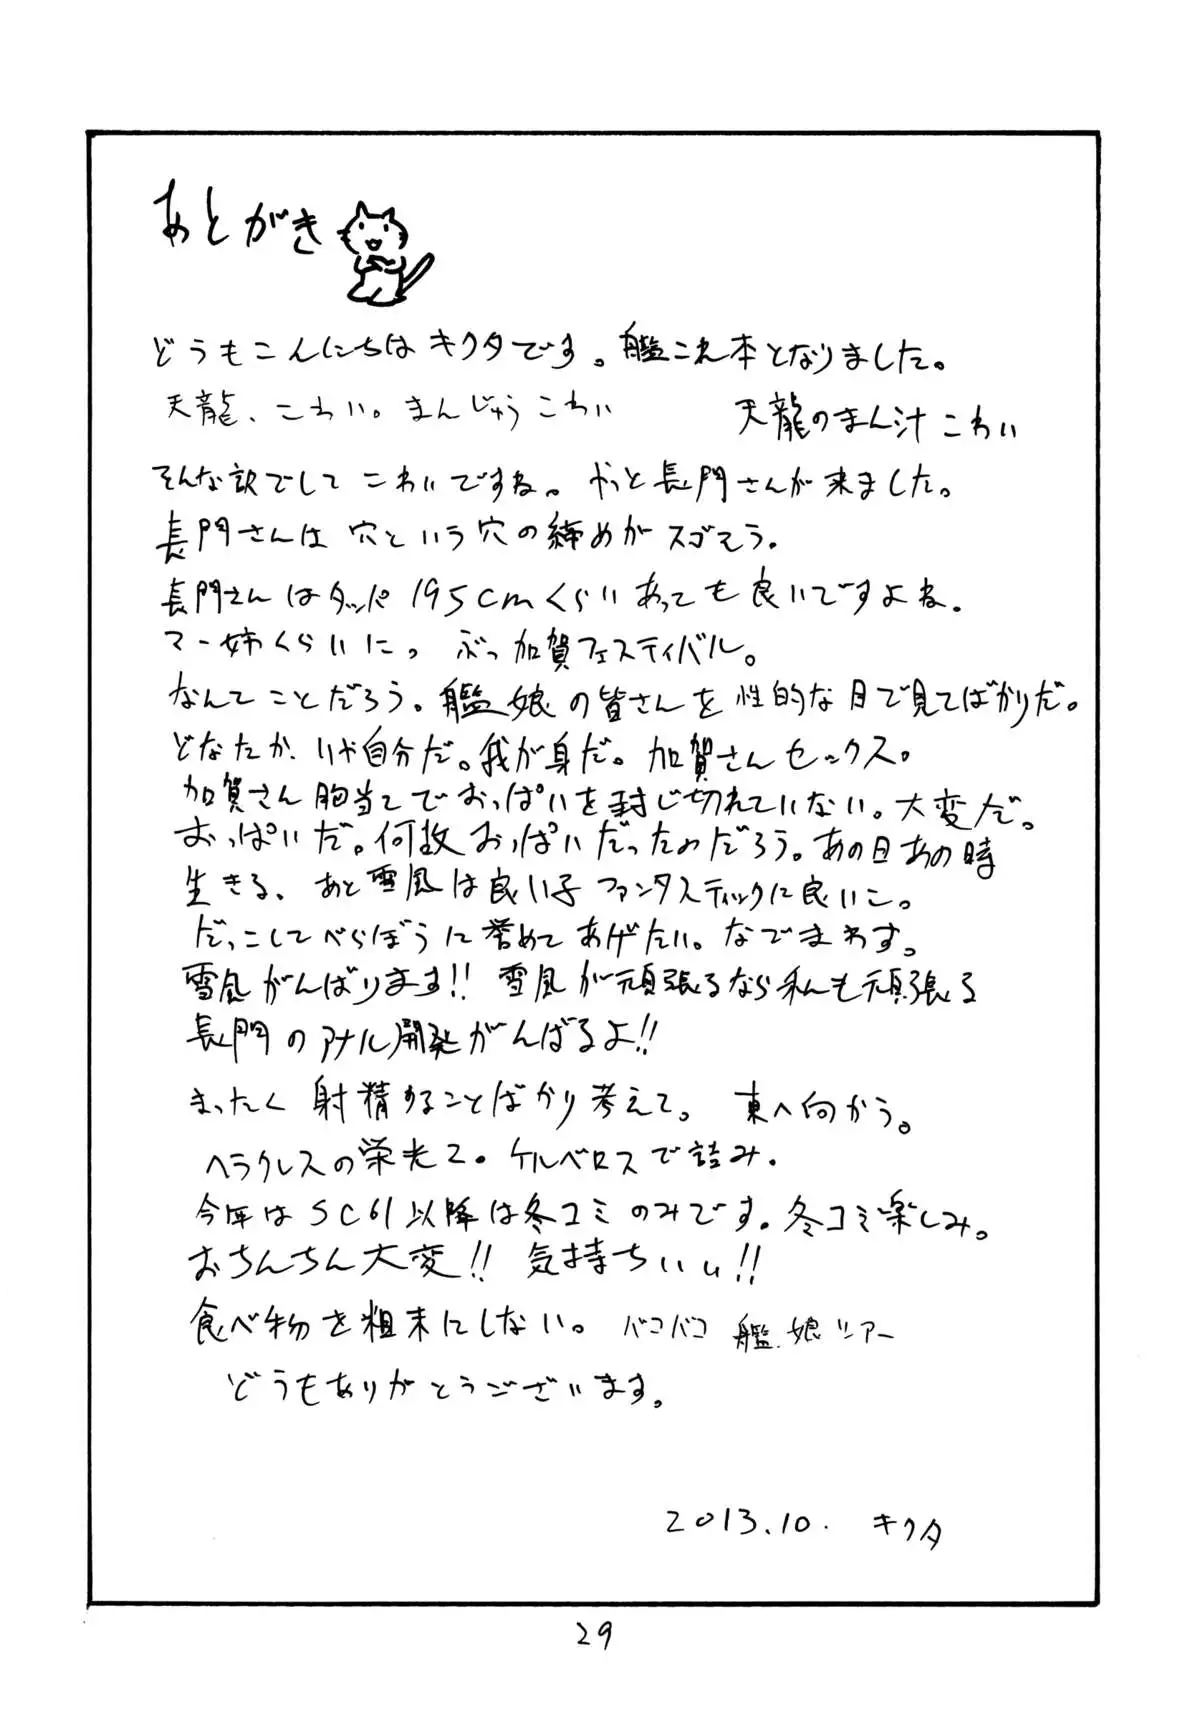 あとがき
どうもこんにちはキクタです。艦これ本となりました。
天龍、こわい。まんじゅうこわい 天龍のまん汁こわい
そんな訳でして こわいですね。やっと長門さんが来ました。
長門さんは 穴という穴の締めがスゴそう。
長門さんはタッパ195cmくらいあっても良いですよね。
マー姉くらいに。ぶっ加賀フェスティバル。
なんてことだろう。艦娘の皆さんを性的な目で見てばかりだ。
どなたか、いや自分だ。我が身だ。加賀さんセックス。
加賀さん胸当てでおっぱいを封じ切れていない。大変だ。
おっぱいだ。何故おっぱいだったのだろう。あの日あの時
生きる、あと雪風は良い子ファンタスティックに良いこ。
だっこしてべらぼうに誉めてあげたい。なでまわす。
雪風がんばります!! 雪風が頑張るなら私も頑張る
長門のアナル開発がんばるよ!!
まったく射精することばかり考えて。 東へ向かう。
ヘラクレスの栄光2。ケルベロスで詰み。
今年はSC61以降は冬コミのみです。冬コミ楽しみ。
おちんちん大変!! 気持ちいい!!
食べ物を粗末にしない。バコバコ 艦娘ツアー
どうもありがとうございます。
2013.10. キクタ
29